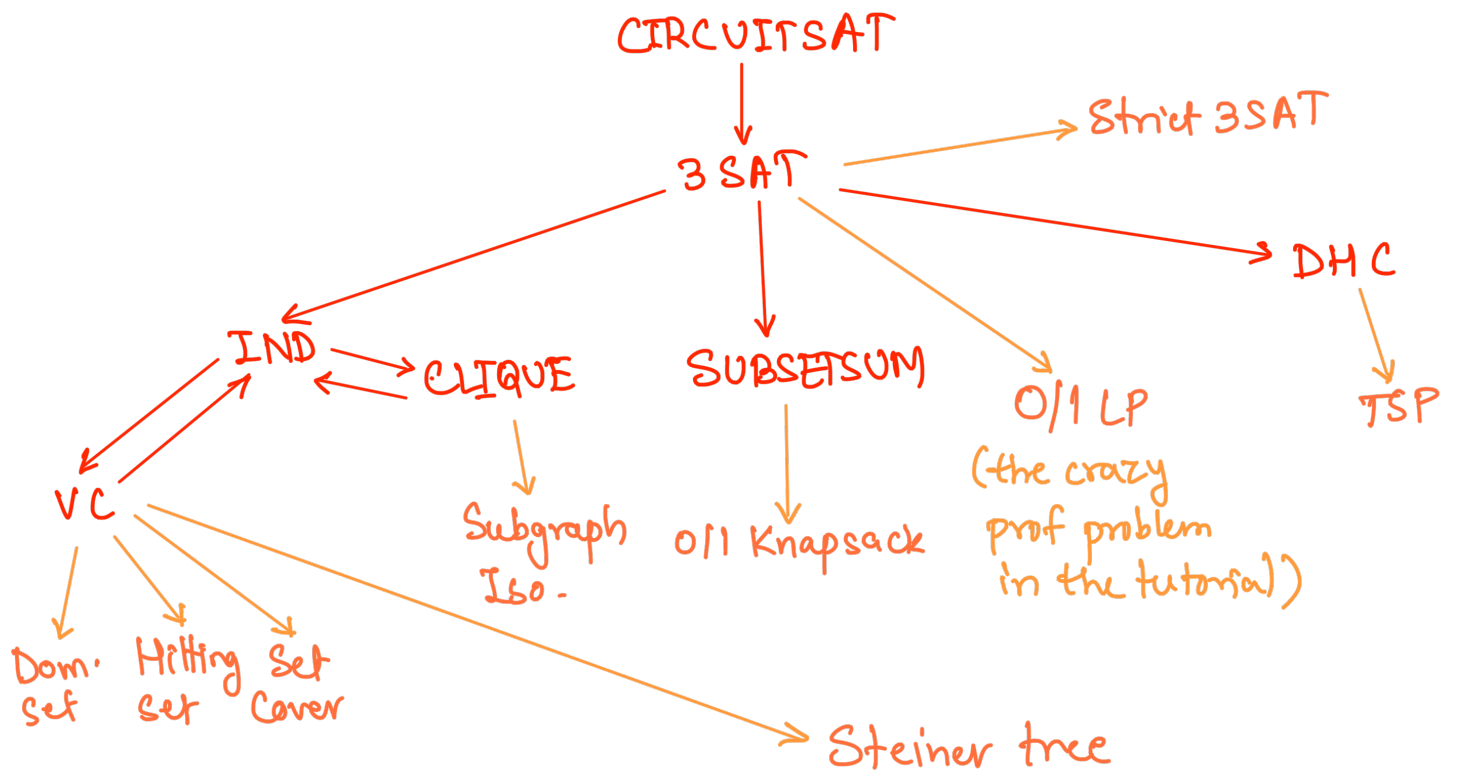 CIRCUITSAT
Strict 3SAT
3SAT
DHC
IND
CLIQUE
SUBSETSUM
0/1 LP
(the crazy
prof problem
in the tutorial)
TSP
VC
Subgraph
Iso.
0/1 Knapsack
Dom.
set
Hitting
set
Set
Cover
Steiner tree